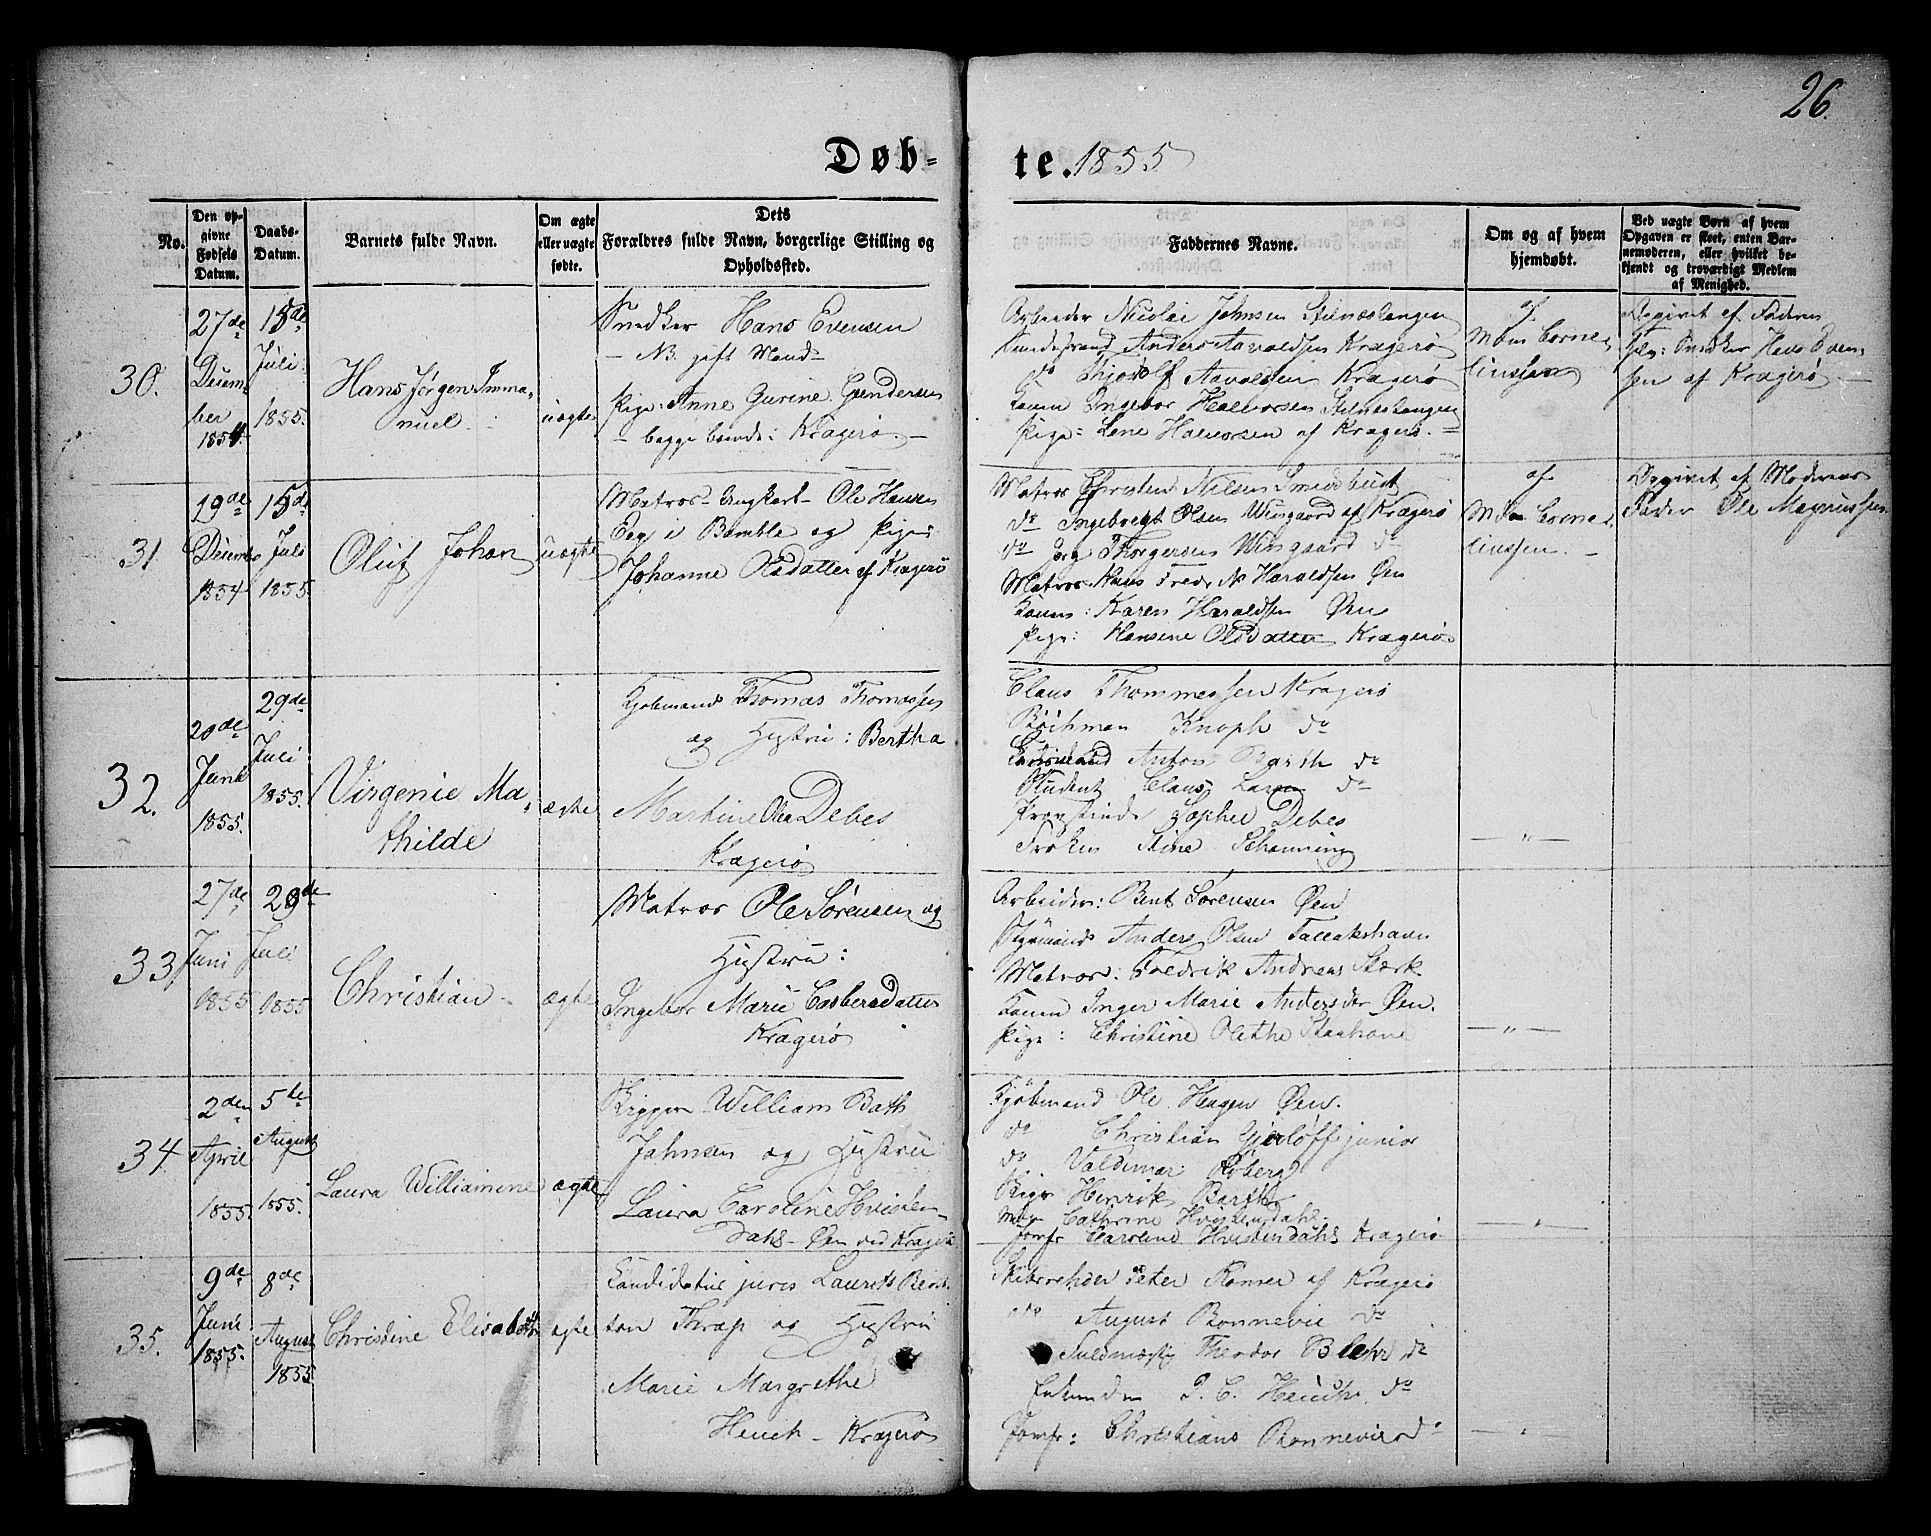 26.
Døb-
te. 1855
No.
Den op-
givne
Fødsels
Datum.
Daabs-
Datum.
Barnets fulde Navn.
Om ægte
eller uægte
fødte.
Dets
Forældres fulde Navn, borgerlige Stilling og
Opholdsted.
Faddernes Navne.
Om og af hvem
hjemdøbt.
Ved uægte Børn af hvem
Opgaven er skeet, enten Bar-
nemoderen, eller hvilket be-
kjendt og troværdigt Medlem
af Menighed.
30.
27de
Decem-
ber
1854.
15de
Juli
1855.
Hans Jörgen Imma-
nuel.
uægte
Snedker Hans Evensen
- NB. gift Mand -
Pige: Anne Gurine Gundersen
- begge boende i Kragerö. -
Arbeider Nicolai Johnsen Stilnestangen
Anders Aavaldsen Kragerö
do Thjodolf Aavaldsen Kragerö
Konen Ingebor Halvorsen Stilnestangen
Pige: Lene Halvorsen af Kragerö.
af
Mdm Corne-
liussen
Opgivet af Faderen
Selv: Snedker Hans Even-
sen af Kragerö
31.
19de
Decemb
1854
15de
Juli
1855.
Oluf Johan
uægte
Matros Ungkarl Ole Hansen
Eeg i Bamble og Pigen
Johanne Olsdatter af Kragerö
Matros Christend Nilsen Smedsbugt
do Ingebregt Olsen Wiisgaard af Kragerö
do Jörg Thorgersen Wiisgaard do
Matros Hans Fredr. N. Haraldsen Øen
Konen: Karen Haraldsen Øen
Pige: Hansine Olsdatter Kragerö
af
Mdm Corne-
liussen. -
Opgivet af Moderens
Fader Ole Magnussen.
32.
20de
Juni
1855.
29de
Juli
1855.
Virgenie Ma-
thilde
ægte
Kjöbmand Thomas Thomassen
og Hustru: Bertha
Martine Olea Debes
Kragerö
Claus Thommessen Kragerö
Knoph do
Anton Barth do
Student Claus Larsen do
Provstinde Sophie Debes
Fröken Stine Schanning
- " -
33.
27de
Juni
1855
29de
Juli
1855
Christian
ægte
Matros Ole Sörensen og
Hustru:
Ingebor Marie Casbersdatter
Kragerö
Arbeider: Bent Sörensen Øen
Styrmand Anders Olsen Tallakshavn
Matros: Fredrik Andreas Stærk.
Konen Inger Marie Andersdr Øen.
Pige: Christine Olethe
- " -
34.
2den
April
1855.
5te
August
1855.
Laura Williamine
ægte
Rigger William Bath
Johnsen og Hustru
Laura Caroline Hvisten-
dahl - Øen ved Kragerö
Kjöbmand Ole Heagen Øen.
do Christian Gjerlöff junior
do Valdemar Roberg
Riger Henrik Barth
Mdm Cathrine Hvistendahl.
Jomfr Caroline Hvistendahl Kragerö
- " -
35.
9de
Juni
1855.
8de
August
1855
Christine Elisabeth
ægte
Candidatus juris Laurits Bent-
ton Thrap og Hustru
Marie Margrethe
Heuch - Kragerö
Skibsrehder Peter Romer af Kragerö
do August Bonnevie do
Fuldmægtig Theodor Blehr do
P. C. Heuch do
Jomfr: Christiane Bonnevie do
- " -